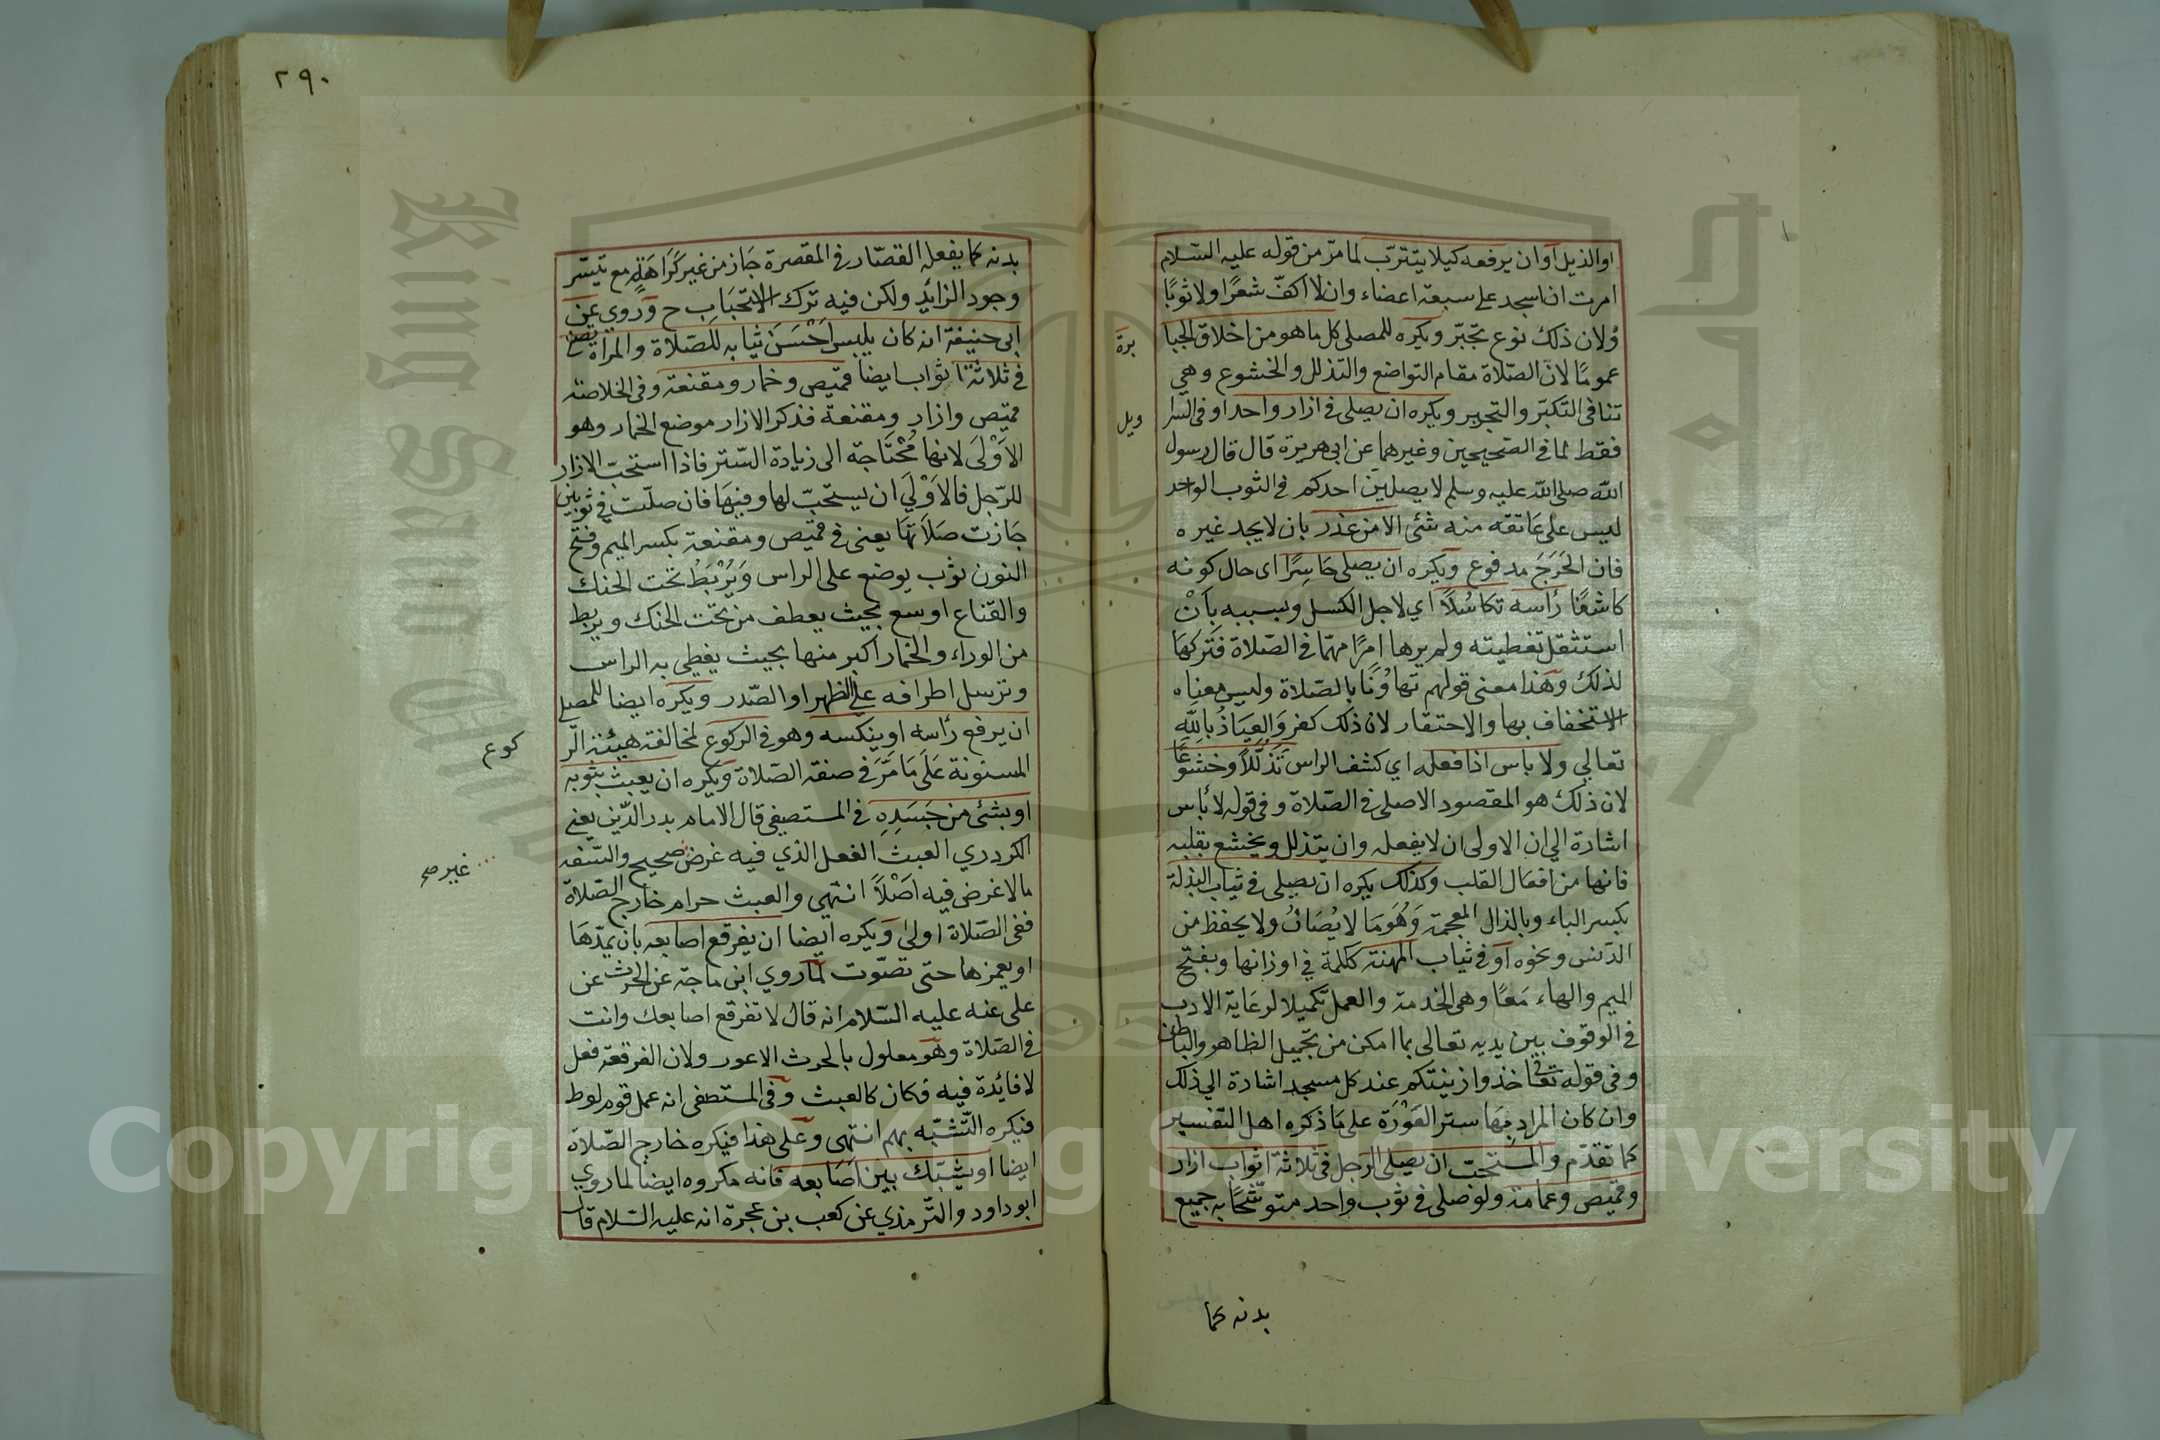 او الذيل آو ان يرفعه كيلا يتترّب لما مرّ من قوله عليه السّلام
امرت ان اسجد على سبعة اعضاء وان لا اكفّ شعرًا ولا ثوبًا
وُلان ذلك نوع تجبّر ويكره للمصلى كل ما هو من اخلاق الجبا
برة
عمومًا لانّ الصّلاة مقام التواضع والتذلل والخشوع وهي
تنافى التكبّر والتجبر ويكره ان يصلى فى ازار واحد او فى السرا
ويل
فقط لما فى الصّحيحين وغيرهما عن ابى هريرة قال قال رسول
اللّه صلى اللّه عليه وسلم لا يصلين احدكم فى الثوب الواحد
ليس على عاتقه منه شئ الا من عذر بان لا يجد غيره
فان الحَرَجَ مدفوع ويكره ان يصلى حَاسِرًا اى حال كونه
كاشفًا رأسه تكاسُلاً اي لاجل الكسل وبسببه بأنْ
استثقل تغطيته ولم يرها امرًا مهمّا فى الصّلاة فَتركهَا
لذلك وهٰذا معنى قولهم تهاوُنًا بالصّلاة وليس معناه
الاستخفاف بها والاحتقار لان ذلك كفر وَالعِيَاذُ بِاللّهِ
تعالي ولا باس اذا فعله اي كشف الراس تَذلُّلاً وخشوعًا
لان ذلك هو المقصود الاصلى فى الصّلاة و فى قوله لا بأس
اشارة الي ان الاولى ان لا يفعله وان يتذلل ويخشع بقلبه
فانها من افعال القلب وكذلك يكره ان يصلى فى ثياب البذلة
بكسر الباء وبالذال المعجمة وَهُوَ مَا لا يُصَانُ ولا يحفظ من
الدّنس ونحوه آو فى ثياب المهنة ككلمة في اوزانها وبفتح
الميم والهاء مَعًا وهى الخدمة والعمل تكميلا لرعَاية الادب
فى الوقوف بين يديه تعالى بما امكن من تجميل الظاهر والباطن
وفى قوله تعا خذوا زينتكم عند كل مسجد اشارة الي ذلك
وان كان المراد بهَا ستر العَوْرَة على مَا ذكره اهل التفسير
كما تقدّم والمستحب ان يصلى الرّجل فى ثلاثة اثواب ازار
وقميص وعمامة ولو صلى فى ثوب واحد متوشّحًا به جميع
بدنه كما
٢٩٠
بدنه كما يفعله القصّار فى المقصرة جَاز من غير كَرَاهَةٍ مع تيسّر
وجود الزائد ولكن فيه ترك الاستحبَاب ح وروي عن
ابى حنيفة انه كان يلبس اَحْسَنَ ثيابه للصّلاة والمراة تصلى
فى ثلاثة اثواب ايضًا قميص وخمار ومقنعة وفى الخلاصة
قميص وازار ومقنعة فذكر الازار موضع الخمار وهو
الاَوْلَى لانها مُحْتَاجة الى زيادة السّتر فاذا استحبّ الازار
للرّجل فالاَوْلَي ان يستحبّ لها وفيهَا فان صلّت في ثوبين
جَازت صَلاَتهَا يعنى فى قميص ومقنعة بكسر الميم وفتح
النون ثوب يوضع على الراس وَيُرْبَطُ تحت الحنك
والقناع اوسع بحيث يعطف من تحت الحنك ويربط
من الوراء والخمار اكبر منها بحيث يغطى به الراس
وترسل اطرافه على الظهر او الصّدر ويكره ايضا للمصلى
ان يرفع رأسه او ينكسه وهو فى الركوع لمخالفة هيئة الر
كوع
المسنونة عَلَى مَا مَرَّ فى صفة الصّلاة ويكره ان يعبث بثوبه
او بشئ من جَسَدِهِ فى المستصفى قال الامام بدر الدّين يعنى
الكردري العبث الفعل الذي فيه غرض صحيح والسّفه
غير صح
مالا غرض فيه اَصْلاً انتهى والعبث حرام خارج الصّلاة
ففى الصّلاة اولى ويكره ايضا ان يفرقع اصابعه بان يمدّهَا
او يغمزها حتى تصّوت لما روي ابن ماجة عن الحرث عن
على عنه عليه السّلام انه قال لا تفرقع اصابعك وانت
فى الصّلاة وهو معلول بالحرث الاعور ولان الفرقعة فعل
لا فائدة فيه فكان كالعبث وفى المستصفى انه عمل قوم لوط
فيكره التّشبّه بهم انتهى وعلى هٰذا فيكره خارج الصّلاة
ايضا او يشبّك بين اَصَابعه فانه مكروه ايضًا لما روي
ابو داود والتّرمذي عن كعب بن عجرة انه عليه السّلام قال
King Saud University
جامعة الملك سعود
1957
Copyright © King Saud University